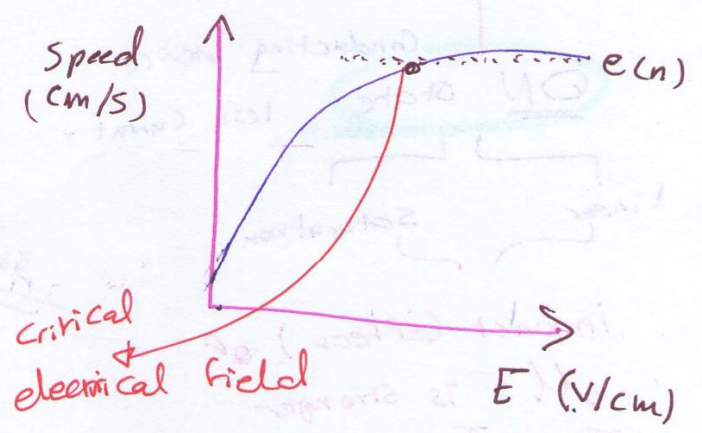 Speed
(cm/s)
e(n)
critical
elecrical field
E (V/cm)